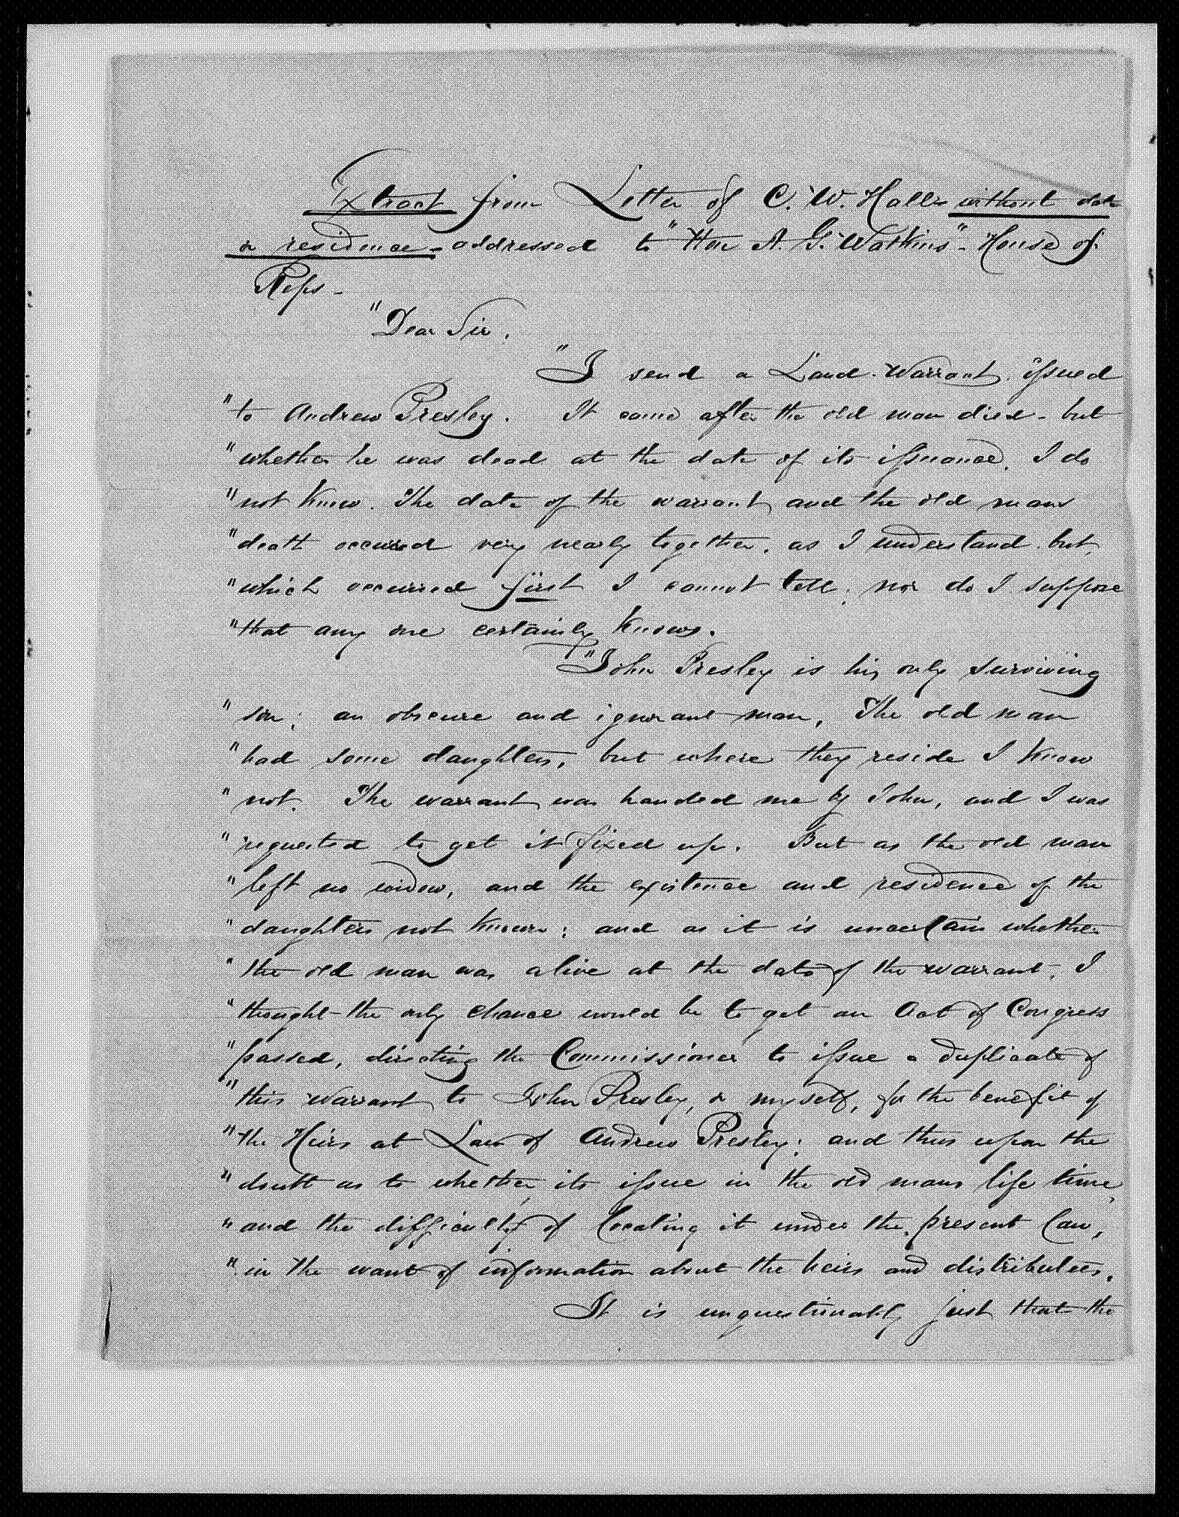 Extract from Letter of C. W. Hall - without date
or residence - addressed to "Hon A. G. Watkins" - House of
Reps -
"Dear Sir,
"I send a Land Warrant issued
"to Andrew Presley. It came after the old man died - but
"whether he was dead at the date of its issuance, I do
"not know. The date of the warrant, and the old mans
"death occurred very nearly together, as I understand but,
"which occurred first I cannot tell; nor do I suppose
"that any one certainly knows.
"John Presley is his only surviving
"son; an obscure and ignorant man, The old man
"had some daughters, but where they reside I know
"not. The warrant was handed me by John, and I was
"requested to get it fixed up. But as the old man
"left no widow, and the existence and residence of the
"daughters not known; and as it is uncertain whether
"the old man was alive at the date of the warrant, I
"thought the only chance would be to get an Act of Congress
"passed, directing the Commissioner to issue a duplicate of
"this warrant to John Presley, or myself, for the benefit of
"the Heirs at Law of Andrew Presley; and thus upon the
"doubt as to whether its issue in the old mans life time,
"and the difficulty of locating it under the present law,
"in the want of information about the heirs and distributees.
It is unquestionably just that the